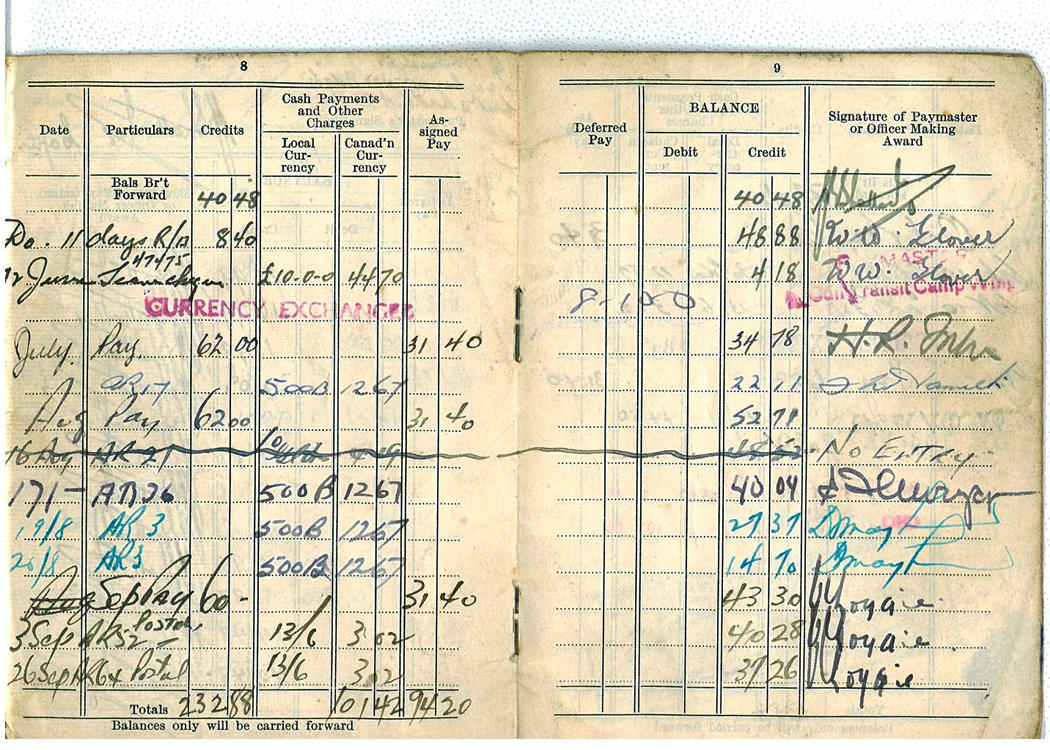 8
Date Particulars Credits Cash Payments and Other Charges Local Currency Canad'n Currency Assigned Pay
Bals Br't Forward 40 48
Do. 11 days R/A 8 40
12 June £10-0-0 44 70
CURRENCY EXCHANGED
July Pay 62 00 31 40
AR 17 500B 12 67
Aug Pay 62 00 31 40
16 Aug AR 21
17/- AR 26 500B 12 67
19/8 AR 3 500B 12 67
20/8 AR3 500B 12 67
Aug Sep Pay 60- 31 40
3 Sep AR52 Postal 13/6 3 02
26 Sep AR64 Postal 13/6 3 02
Totals 232 88 101 42 94 20
Balances only will be carried forward
9
Deferred Pay BALANCE Debit Credit Signature of Paymaster or Officer Making Award
40 48
48 88 W.W. Glover
4 18 W.W. Glover
MASTER
Transit Camp
34 78 H.R.
22 11
52 71
No Entry
40 04
27 37
14 70
43 30
40 28
37 26